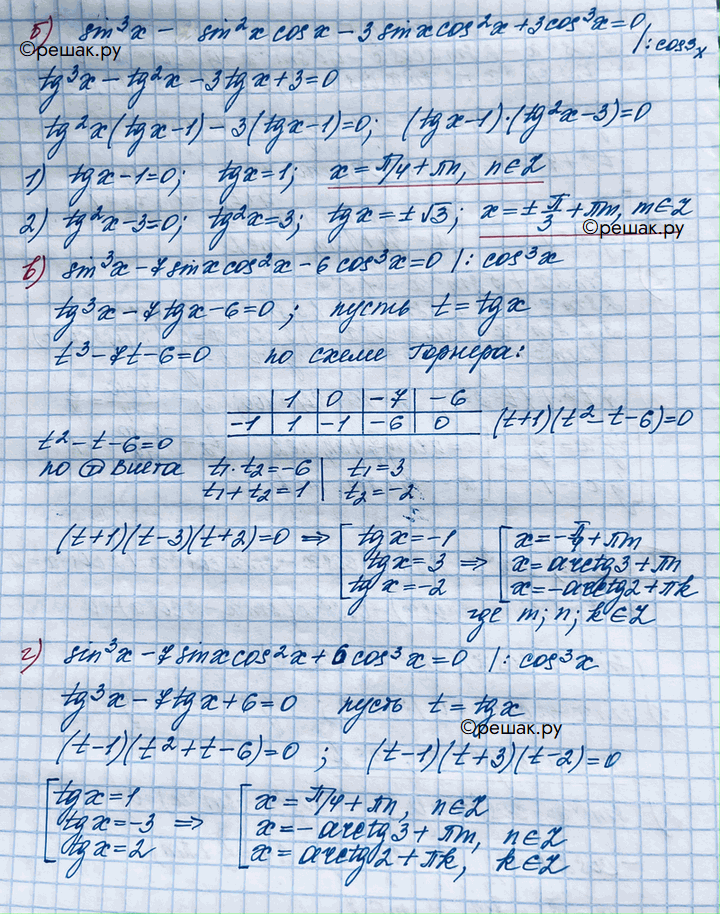 б) sin³x - sin²x cosx - 3 sinx cos²x + 3cos³x = 0 /: cos³x
©решак.ру
tg³x - tg²x - 3tgx + 3 = 0
tg²x(tgx - 1) - 3(tgx - 1) = 0; (tgx - 1)·(tg²x - 3) = 0
1) tgx - 1 = 0; tgx = 1; x = π/4 + πn, n∈Z
2) tg²x - 3 = 0; tg²x = 3; tgx = ±√3; x = ± π/3 + πm, m∈Z
©решак.ру
в) sin³x - 7 sinx cos²x - 6 cos³x = 0 /: cos³x
tg³x - 7 tgx - 6 = 0; пусть t = tgx
t³ - 7t - 6 = 0 по схеме Горнера:
1 0 -7 -6
-1 1 -1 -6 0 (t+1)(t² - t - 6) = 0
t² - t - 6 = 0
по Т Виета t₁·t₂ = -6 | t₁ = 3
t₁ + t₂ = 1 | t₂ = -2
(t+1)(t-3)(t+2) = 0 ⇒ [ tgx = -1 [ x = -π/4 + πm
tgx = 3 ⇒ x = arctg3 + πn
tgx = -2 x = -arctg2 + πk
где m; n; k∈Z
г) sin³x - 7 sinx cos²x + 6 cos³x = 0 /: cos³x
tg³x - 7 tgx + 6 = 0 пусть t = tgx
©решак.ру
(t-1)(t² + t - 6) = 0; (t-1)(t+3)(t-2) = 0
[ tgx = 1 [ x = π/4 + πn, n∈Z
tgx = -3 ⇒ x = -arctg3 + πm, n∈Z
tgx = 2 x = arctg2 + πk, k∈Z